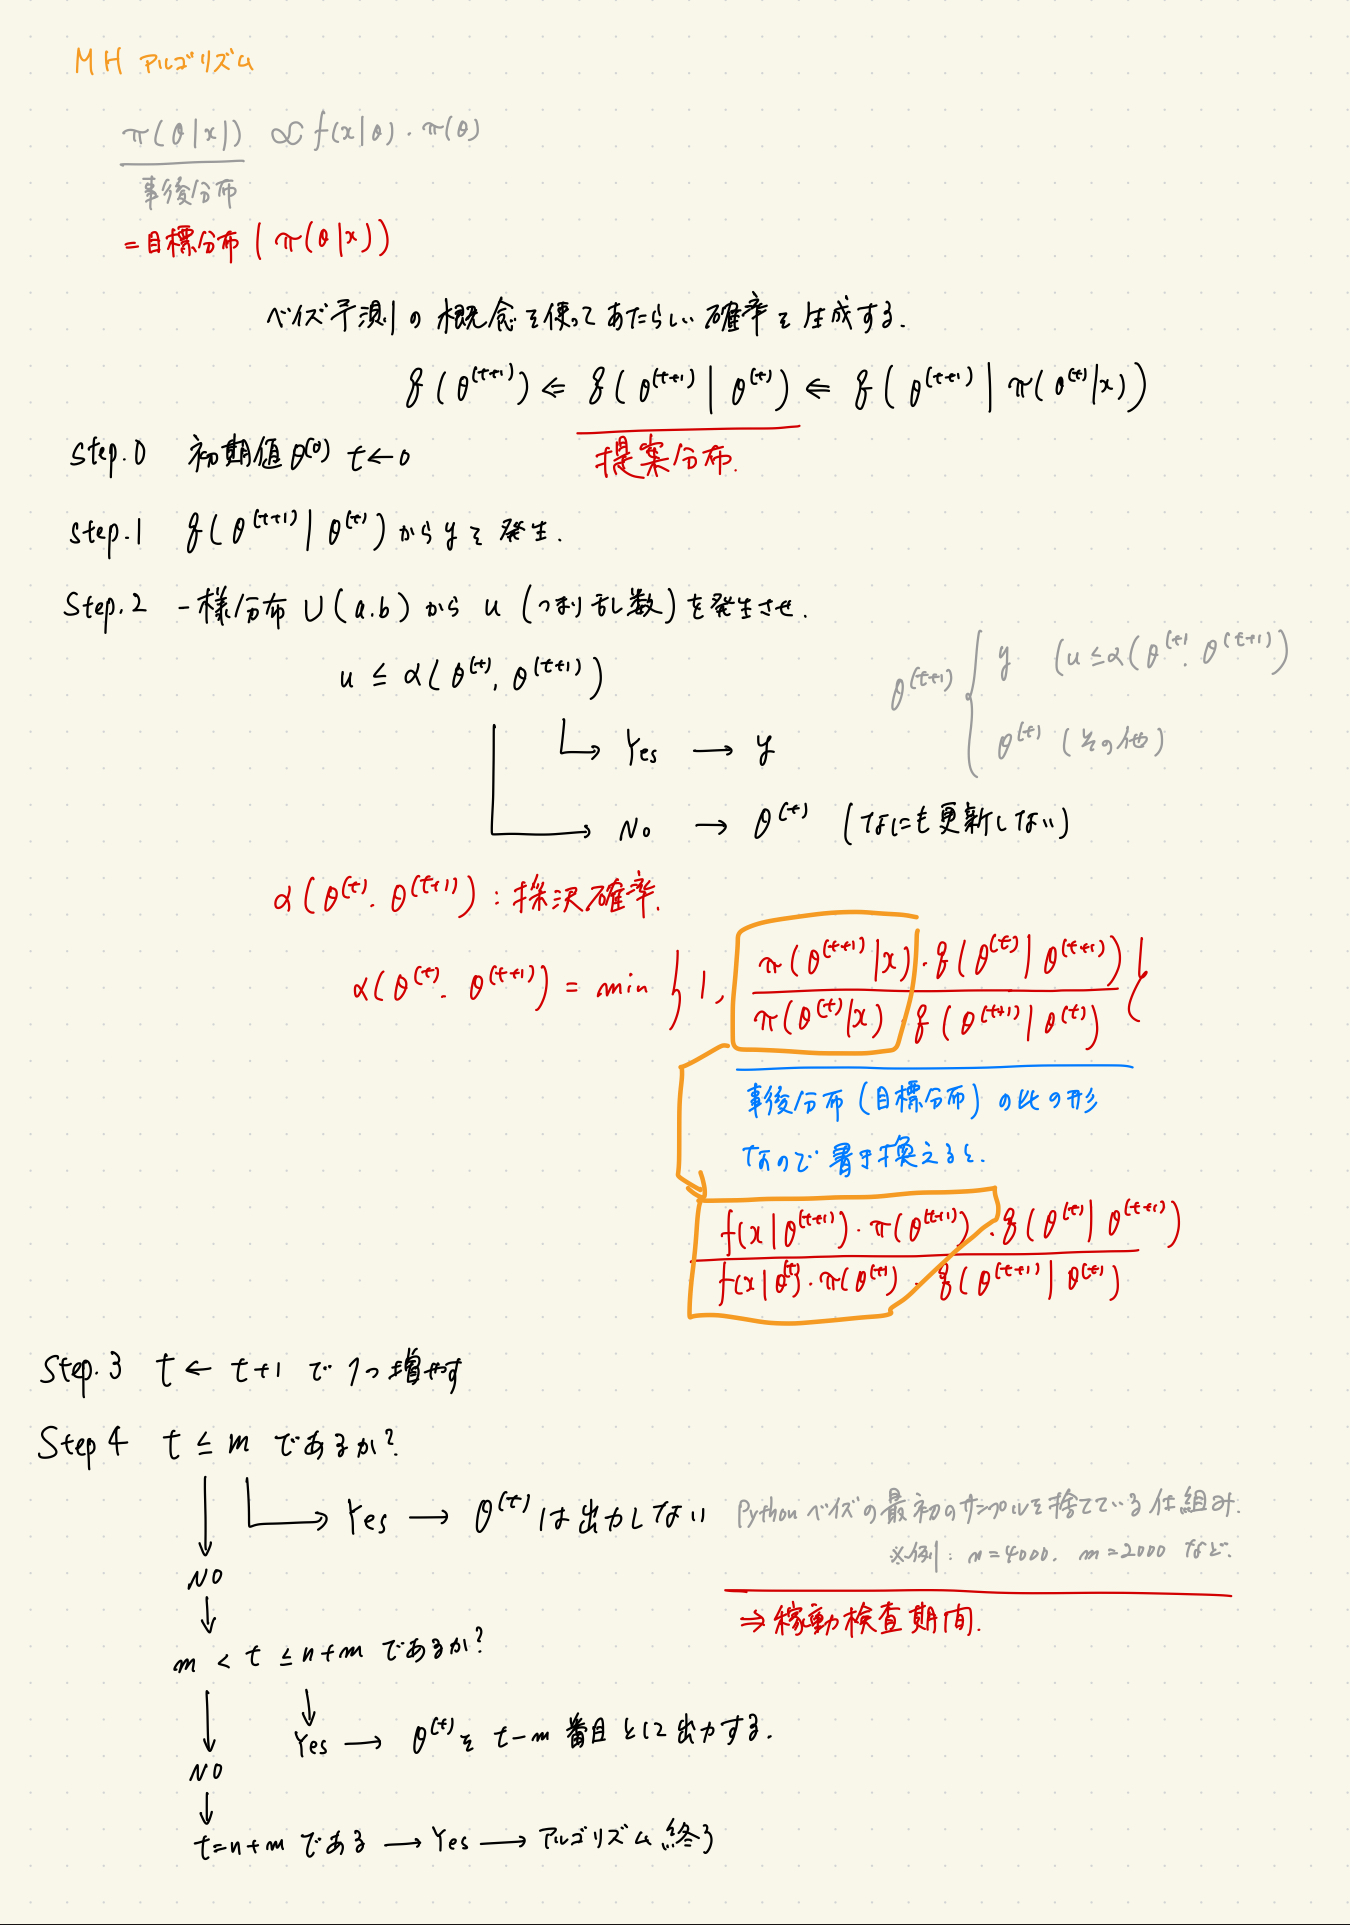 MH アルゴリズム
π(θ|x) ∝ f(x|θ)・π(θ)
事後分布
=目標分布 (π(θ|x))
ベイズ予測の概念を使ってあたらしい確率を生成する.
q(θ^(t+1)) ⇐ q(θ^(t+1)|θ^(t)) ⇐ q(θ^(t+1)|π(θ^(t)|x))
提案分布.
Step.0 初期値θ^(0) t←0
Step.1 q(θ^(t+1)|θ^(t))からyを発生.
Step.2 一様分布 U(a.b) から u (つまり乱数) を発生させ.
u ≦ α(θ^(t), θ^(t+1))
Yes → y
No → θ^(t) (なにも更新しない)
θ^(t+1) { y (u≦α(θ^(t), θ^(t+1))
θ^(t) (その他)
α(θ^(t), θ^(t+1)) : 採択確率.
α(θ^(t), θ^(t+1)) = min { 1, π(θ^(t+1)|x)・q(θ^(t)|θ^(t+1)) / π(θ^(t)|x)・q(θ^(t+1)|θ^(t)) }
事後分布(目標分布)の比の形
なので書き換えると.
f(x|θ^(t+1))・π(θ^(t+1))・q(θ^(t)|θ^(t+1))
f(x|θ^(t))・π(θ^(t))・q(θ^(t+1)|θ^(t))
Step.3 t ← t+1 で 1つ増やす
Step 4 t ≦ m であるか?
Yes → θ^(t) は出力しない
Python ベイズの最初のサンプルを捨てている仕組み.
※例: n=4000. m=2000 など.
⇒ 稼動検査期間.
NO
m < t ≦ n+m であるか?
Yes → θ^(t)を t-m 番目として出力する.
NO
t=n+m である → Yes → アルゴリズム終了